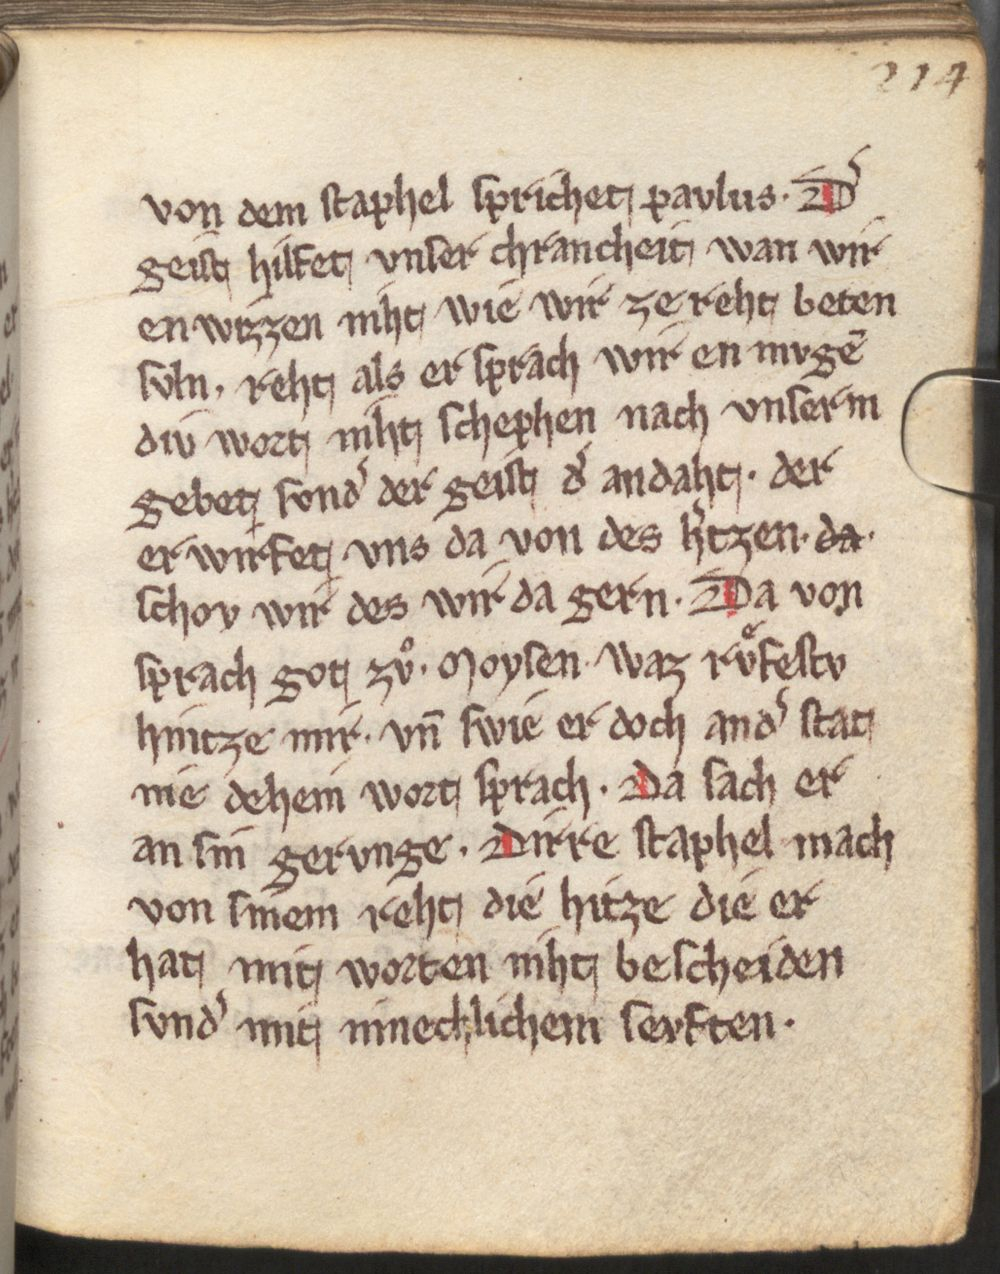 214
von dem staphel sprichet pavlus. D᾽
geist hilfet vnser chrancheit wan wir
en wizzen niht wie wir ze reht beten
svln. reht als er sprach wir en mvgē
div wort niht schephen nach vnserm
gebet svnd᾽ der geist d᾽ andaht. der
er wirfet vns da von des h᾽tzen. da.
schov wir des wir da gern. Da von
sprach got zvͦ. Moysen. waz rvͤfestv
hintze mir. vn̄ swie er doch and᾽ stat
nie dehein wort sprach. Da sach er
an sin gervnge. Dirre staphel mach
von sinem reht die hitze die er
hat mit worten niht bescheiden
svnd᾽ mit innechlichem sevften.